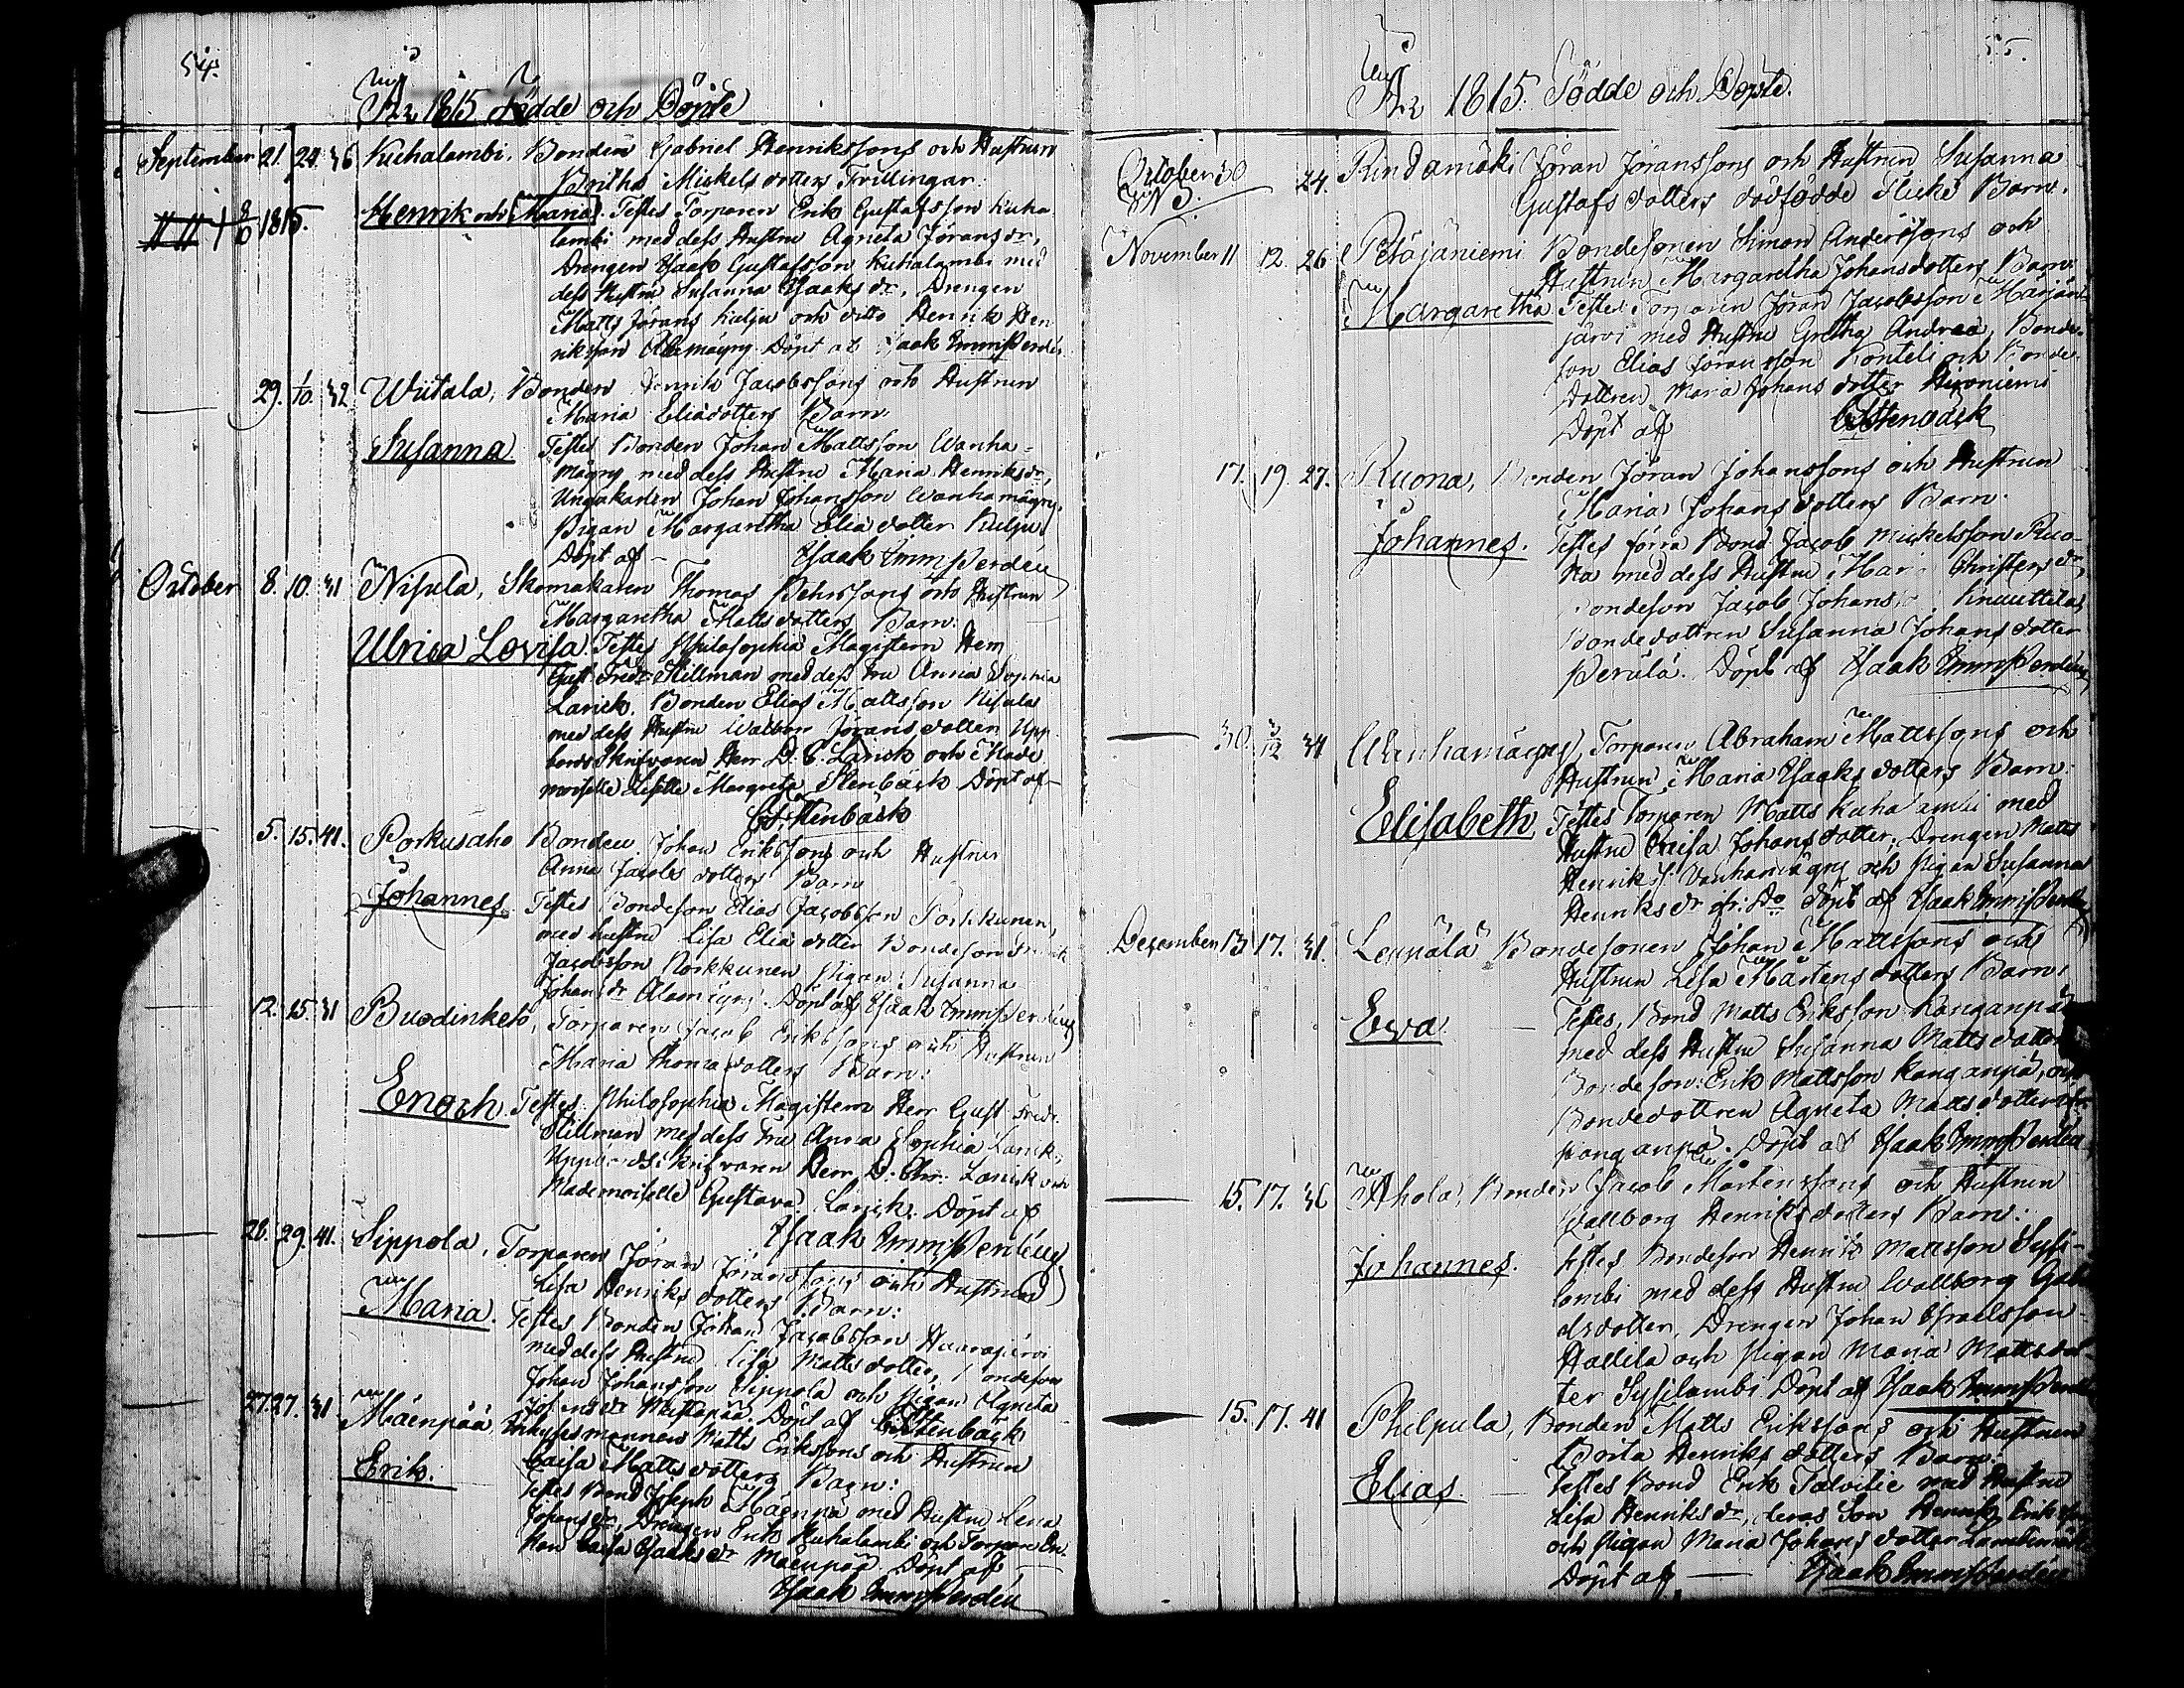 54.
År 1815 Födde och Döpte
September 21. 24. 36 Kuhalambi, Bonden Gabriel Henrikssons och Hustrun
Britha Mickelsdotters Trillingar.
1815. Henrik och Maria. Testes Torparen Erik Gustafsson Kuha
lambi med dess Hustru Agneta Jöransdr,
Drengen Isaak Gustafsson Kuhalambi med
dess Hustru Susanna Isaaksdr, Drengen
Matts Jörans Kulju och ditto Henrik Hen
riksson Alamägry. Döpt af Isaak Imm Perdén
29. 1/10. 32 Wiitala, Bonden Henrik Jacobssons och Hustrun
Maria Eliædotters Barn
Susanna Testes Bonden Johan Mattsson Wanha-
mägry med dess Hustru Maria Henriksdr,
Ungakarlen Johan Johansson Wanhamägry,
Pigan Margaretha Eliædotter Kulju
Döpt af - Isaak Imm Perdén
October 8. 10. 31 Nisula, Skomakaren Thomas Pehrssons och Hustrun
Margaretha Mattsdotters Barn.
Ulrica Lovisa. Testes Philosophiæ Magistern Herr
Gust Fredr Stillman med dess Fru Anna Sophia
Lanick, Bonden Elias Mattsson Nisula
med dess Hustru Walborg Jöransdotter, Upp
bördsSkrifvaren Herr D. C. Lanick och Made
moiselle Lisette Margreta Stenbäck Döpt af
CFStenbäck
5. 15. 41. Porkusaho Bonden Johan Erikssons och Hustrun
Anna Jacobsdotters Barn
Johannes. Testes Bondeson Elias Jacobsson Porkkunen,
med hustru Lisa Eliædotter Bondeson Henrik
Jacobsson Porkkunen Pigan Susanna
Johansdr Alamägry. Döpt af Isaak Imm Perdén
12. 15. 31 Buodinketo, Torparen Jacob Erikssons och Hustrun
Maria Thomædotters Barn:
Enoch. Testes Philosophiæ Magistern Herr Gust Fredr.
Stillman med dess Fru Anna Sophia Lanick,
Uppbördsskrifvaren Herr D. Chr. Lanick och
Mademoiselle Gustava Lanick. Döpt af
Isaak Imm Perdén
26. 29. 41. Sippola, Torparen Jöran Jöranssons och Hustrun
Lisa Henriksdotters Barn:
Maria. Testes Bonden Johan Jacobsson Haarajärvi
med dess Hustru Lisa Mattsdotter, Bondeson
Johan Johansson Sippola och Pigan Agneta
Döpt af CFStenbäck
27. 27. 31 Mäenpää, Inhysesmannen Matts Erikssons och Hustrun
Caisa Mattsdotters Barn:
Erik. Testes Bond Joseph Mäenpä med Hustru Lena
Johansdr, Drengen Erik Kuhalambi och Torpare En-
kan Caisa Isaaksdr Mäenpää Döpt af
Isaak Imm Perdén
55.
År 1815. Födde och Döpte.
October 30 24. Rundamäki Jöran Jöranssons och Hustrun Susanna
Gustafsdotters dödfödde Flicke Barn.
November 11 12. 26 Petäjäniemi Bondesonen Simon Anderssons och
Hustrun Margaretha Johansdotters Barn:
Margaretha Testes Torparen Jöran Jacobsson Marjan
järvi med Hustru Gretha Andreæ, Bonde-
son Elias Jöransson Konteli och Bonde-
dottren Maria Johansdotter Hironiemi
Döpt af CFStenbäck
17. 19. 27. Ruona, Bonden Jöran Johanssons och Hustrun
Maria Johansdotters Barn.
Johannes. Testes förra Bond Jacob Mickelsson Ruo-
na med dess Hustru Maria Christersdr,
Bondeson Jacob Johans Knuuttila,
Bondedottren Susanna Johansdotter
Perälä. Döpt af Isaak Imm Perdén
30. 3/12 31 Wanhamägry, Torparen Abraham Mattssons och
Hustrun Maria Isaaksdotters Barn:
Elisabeth Testes Torparen Matts Kuhalambi med
Hustru Caisa Johansdotter, Drengen Matts
Henrikss. Vanhamägry och Pigan Susanna
Henriksdr ifr: Do Döpt af Isaak Imm Perdén
December 13 17. 31. Leppälä Bondesonen Johan Mattssons och
Hustrun Lisa Mårtensdotters Barn:
Eva Testes, Bond Matts Eriksson Kanganpä
med dess Hustru Susanna Mattsdotter
Bondeson: Erik Mattsson Kanganpä, och
Bondedottren Agneta Mattsdotter
Kanganpä. Döpt af Isaak Imm Perdén
15. 17. 36 Ahola, Bonden Jacob Mårtenssons och Hustrun
Wallborg Henriksdotters Barn:
Johannes. Testes Bondeson Henrik Mattsson Sysi-
lambi med dess Hustru Wallborg Gab
elsdotter, Drengen Johan Israelsson
Hallila och Pigan Maria Mattsdot-
ter Sysilambi Döpt af Isaak Imm Perdén
15. 17. 41 Philpula, Bonden Matts Erikssons och Hustrun
Brita Henriksdotters Barn:
Elias Testes Bond Erik Talvitie med Hustru
Lisa Henriksdr, deras Son Henrik Eriksson
och Pigan Maria Johansdotter
Döpt af — Isaak Imm Perdén